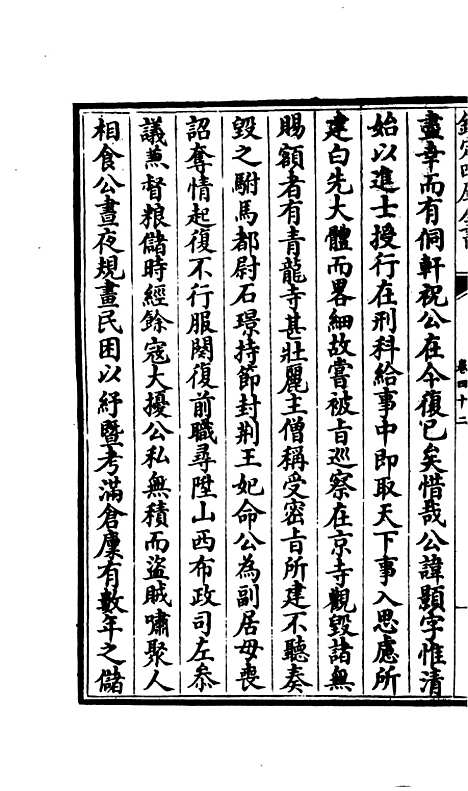 欽定四庫全書
卷四十二
盡幸而有侗軒祝公在今復已矣惜哉公諱顥字惟清
始以進士授行在刑科給事中即取天下事入思慮所
建白先大體而畧細故嘗被旨廵察在京寺觀毀諸無
賜額者有青龍寺甚壯麗主僧稱受密旨所建不聽奏
毀之駙馬都尉石璟持節封荆王妃命公為副居母喪
詔奪情起復不行服闋復前職尋陞山西布政司左叅
議兼督粮儲時經餘寇大擾公私無積而盜賊嘯聚人
相食公晝夜規畫民困以紓暨考滿倉廩有數年之儲